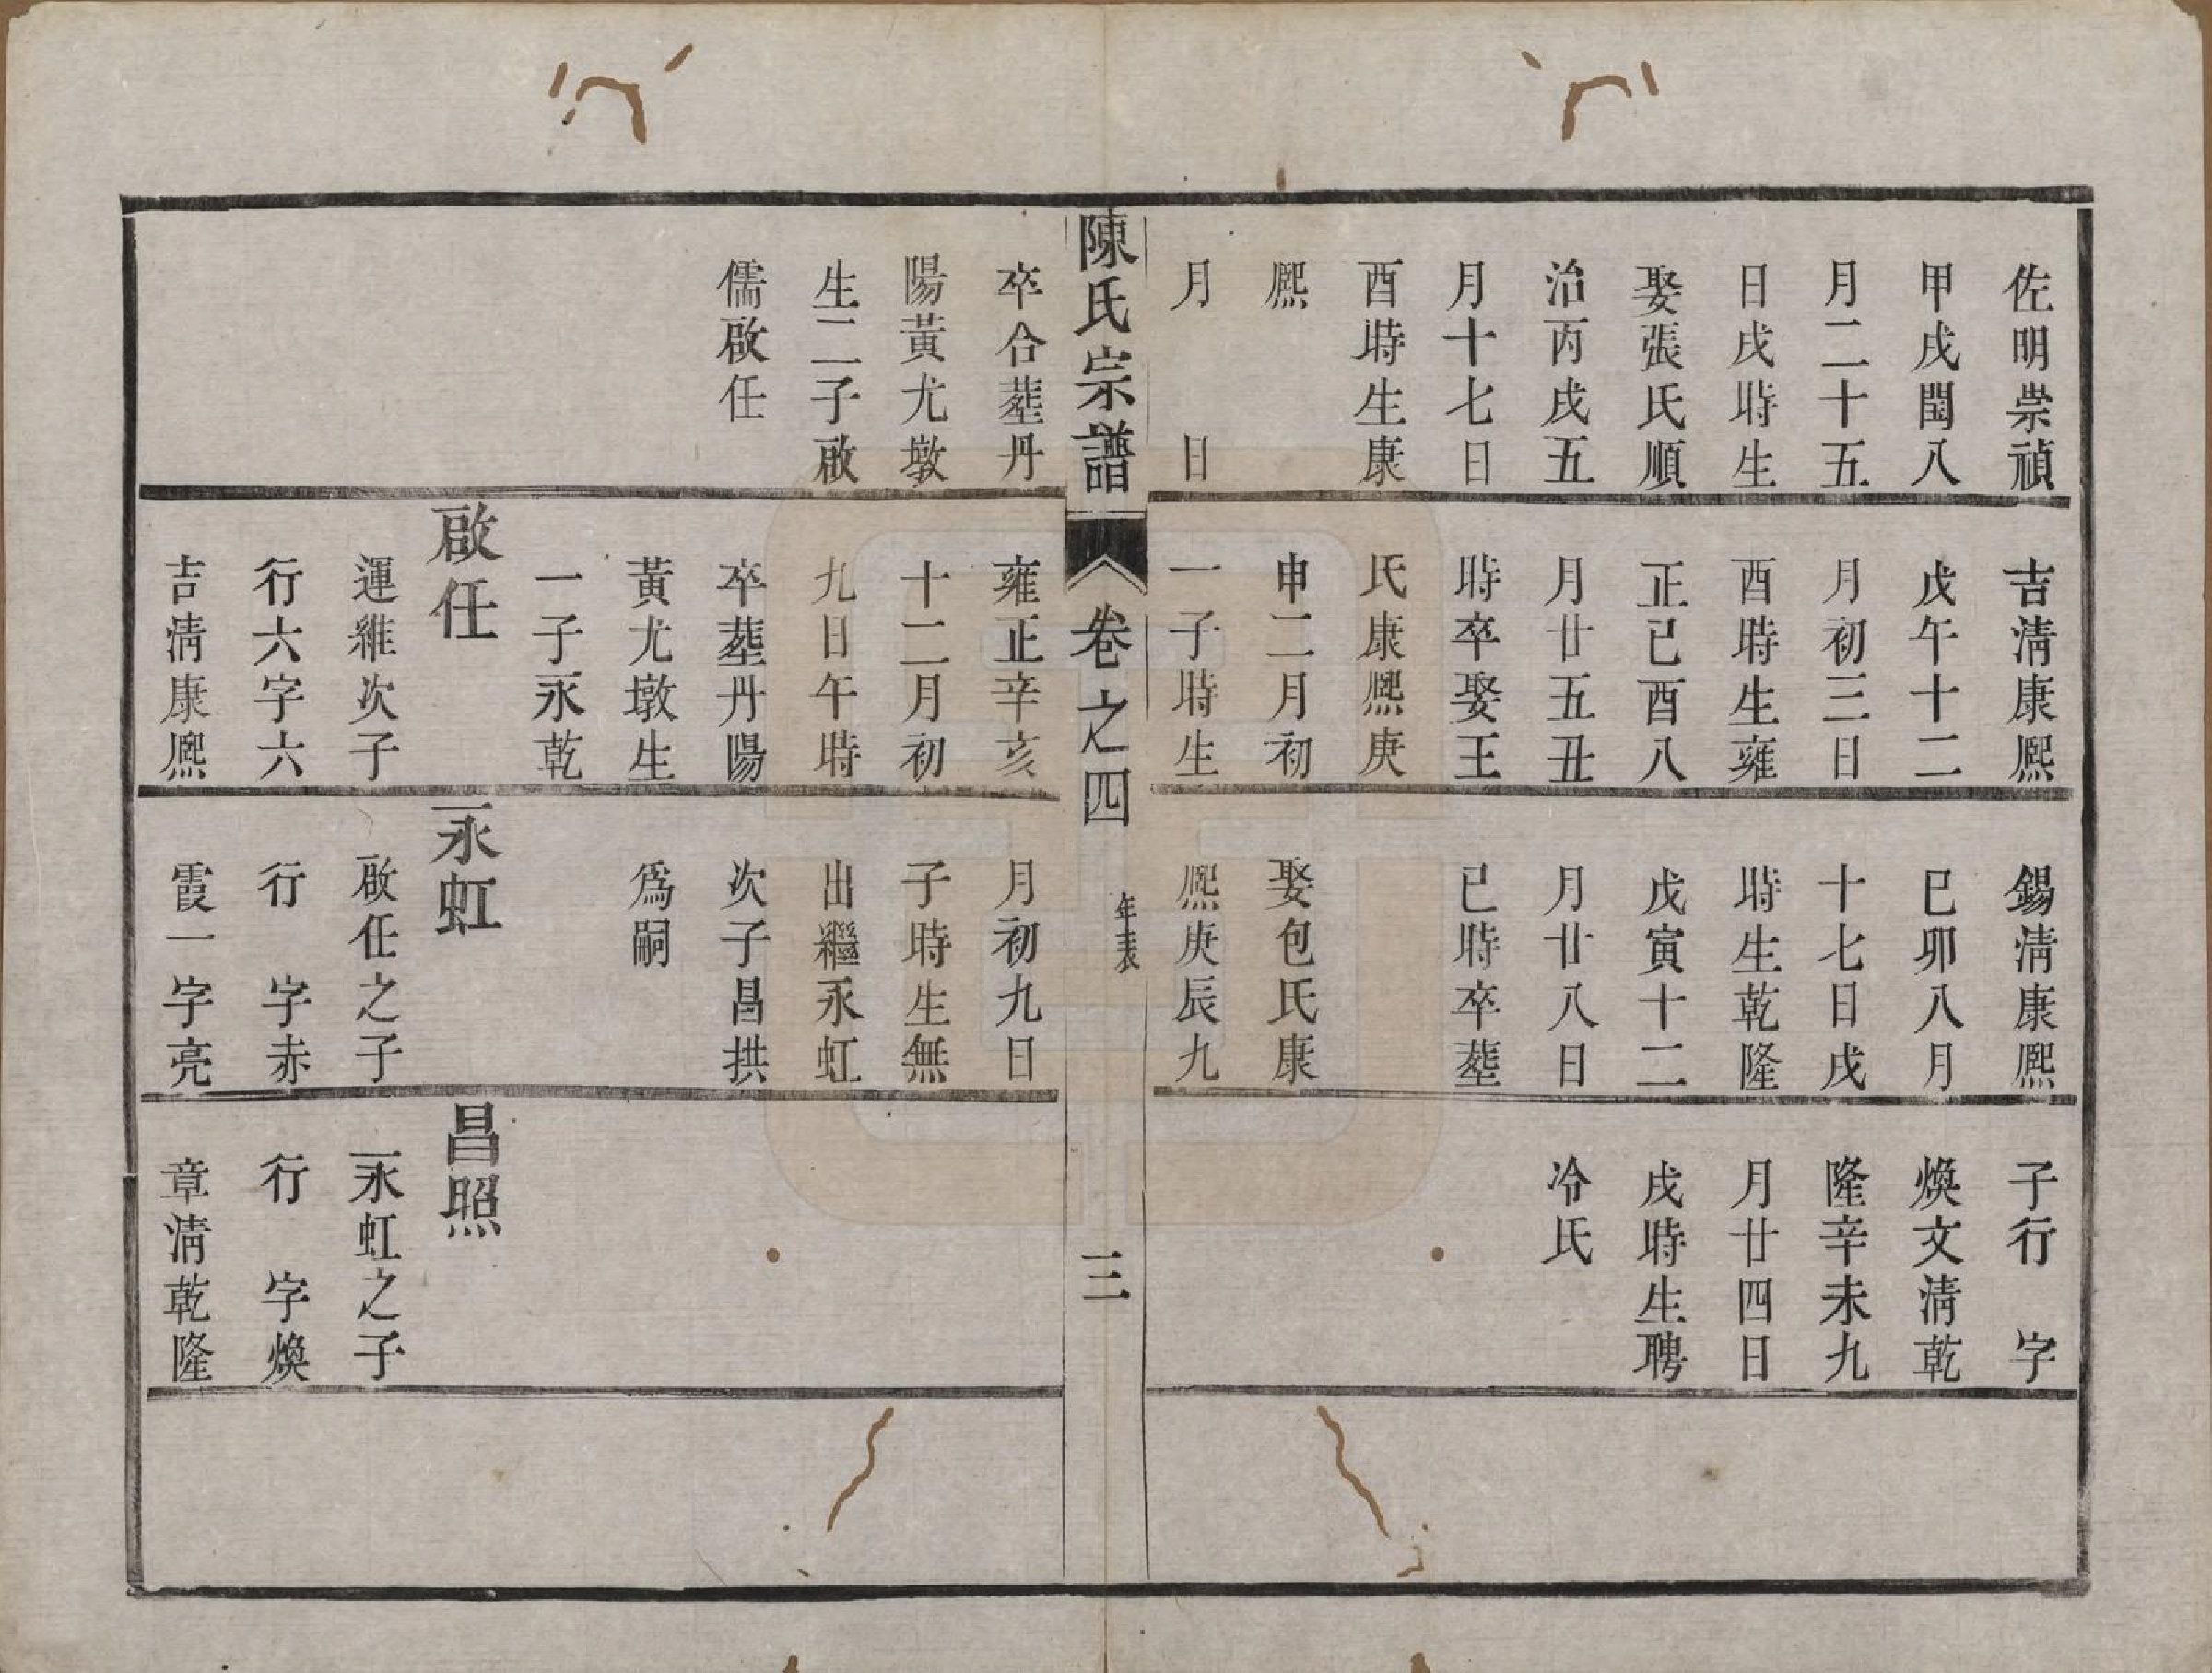 佐明崇禎
甲戌閏八
月二十五
日戌時生
娶張氏順
治丙戌五
月十七日
酉時生康
熙
月　　日
吉淸康熙
戊午十二
月初三日
酉時生雍
正已酉八
月廿五丑
時卒娶王
氏康熙庚
申二月初
一子時生
錫淸康熙
巳卯八月
十七日戌
時生乾隆
戊寅十二
月廿八日
巳時卒塟
娶包氏康
熙庚辰九
子行　字
煥文淸乾
隆辛未九
月廿四日
戌時生聘
冷氏
陳氏宗譜
卷之四
年表
三
卒合塟丹
陽黃尤墩
生二子啟
儒啟任
雍正辛亥
十二月初
九日午時
卒塟丹陽
黃尤墩生
一子永乾
啟任
運維次子
行六字六
吉淸康熙
月初九日
子時生無
出繼永虹
次子昌拱
爲嗣
永虹
啟任之子
行　字赤
霞一字亮
昌照
永虹之子
行　字煥
章淸乾隆